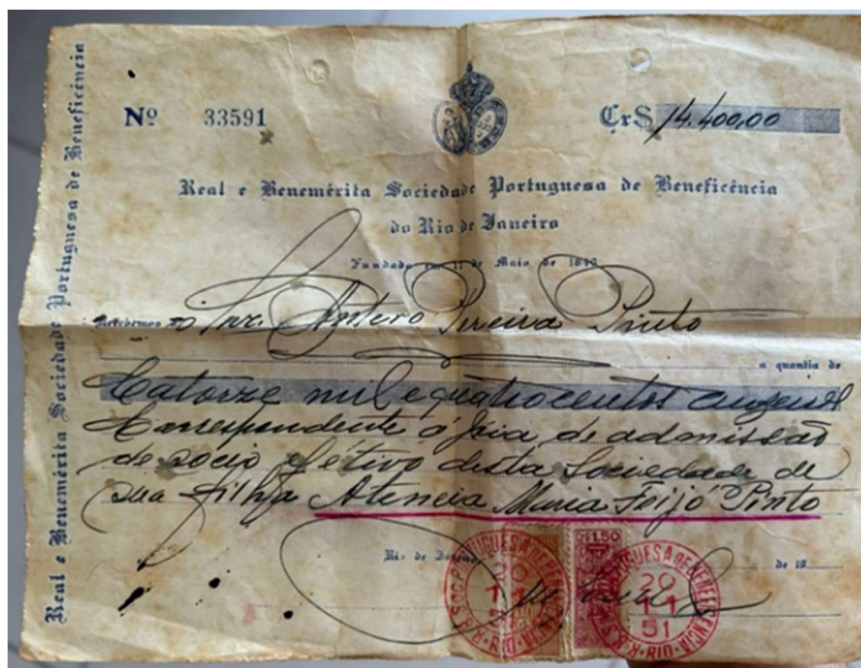 Real e Benemérita Sociedade Portuguesa de Beneficência
Nº 33591
Cr$ 14.400,00
Real e Benemérita Sociedade Portuguesa de Beneficência
do Rio de Janeiro
Fundada em 17 de Maio de 1840
Recebemos do Snr. Antero Pereira Pinto
a quantia de
Catorze mil e quatrocentos cruzeiros
Correspondente á joia de admissão
de socio efetivo desta Sociedade de
sua filha Atencia Maria Feijó Pinto
Rio de Janeiro de 19
1,50
20
11
51